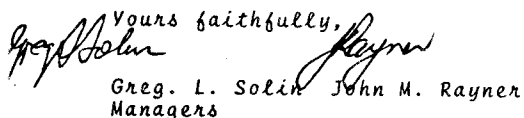 Yours faithfully,
Greg Solin JRayner
Greg. L. Solin John M. Rayner
Managers